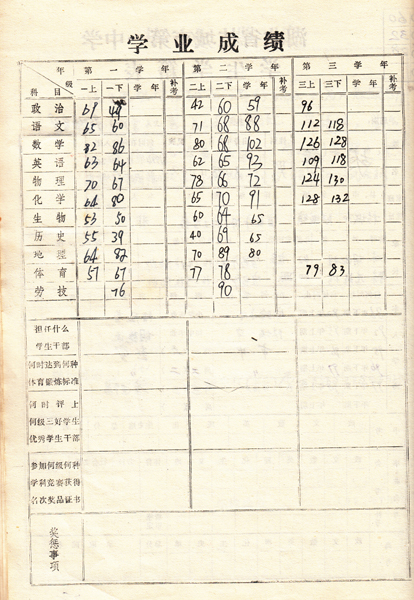 学业成绩
年级 第一学年 第二学年 第三学年
科目 一上 一下 学年 补考 二上 二下 学年 补考 三上 三下 学年 补考
政治 69 42 60 59 96
语文 65 60 71 68 88 112 118
数学 82 86 80 68 102 126 128
英语 63 64 62 65 93 109 118
物理 70 67 78 66 72 124 130
化学 64 80 65 70 91 128 132
生物 53 50 60 64 65
历史 55 39 40 69 65
地理 64 82 70 89 80
体育 57 67 77 78 79 83
劳技 76 90
担任什么
学生干部
何时达到何种
体育锻炼标准
何时评上
何级三好学生
优秀学生干部
参加何级何种
学科竞赛获得
名次奖品证书
奖惩事项